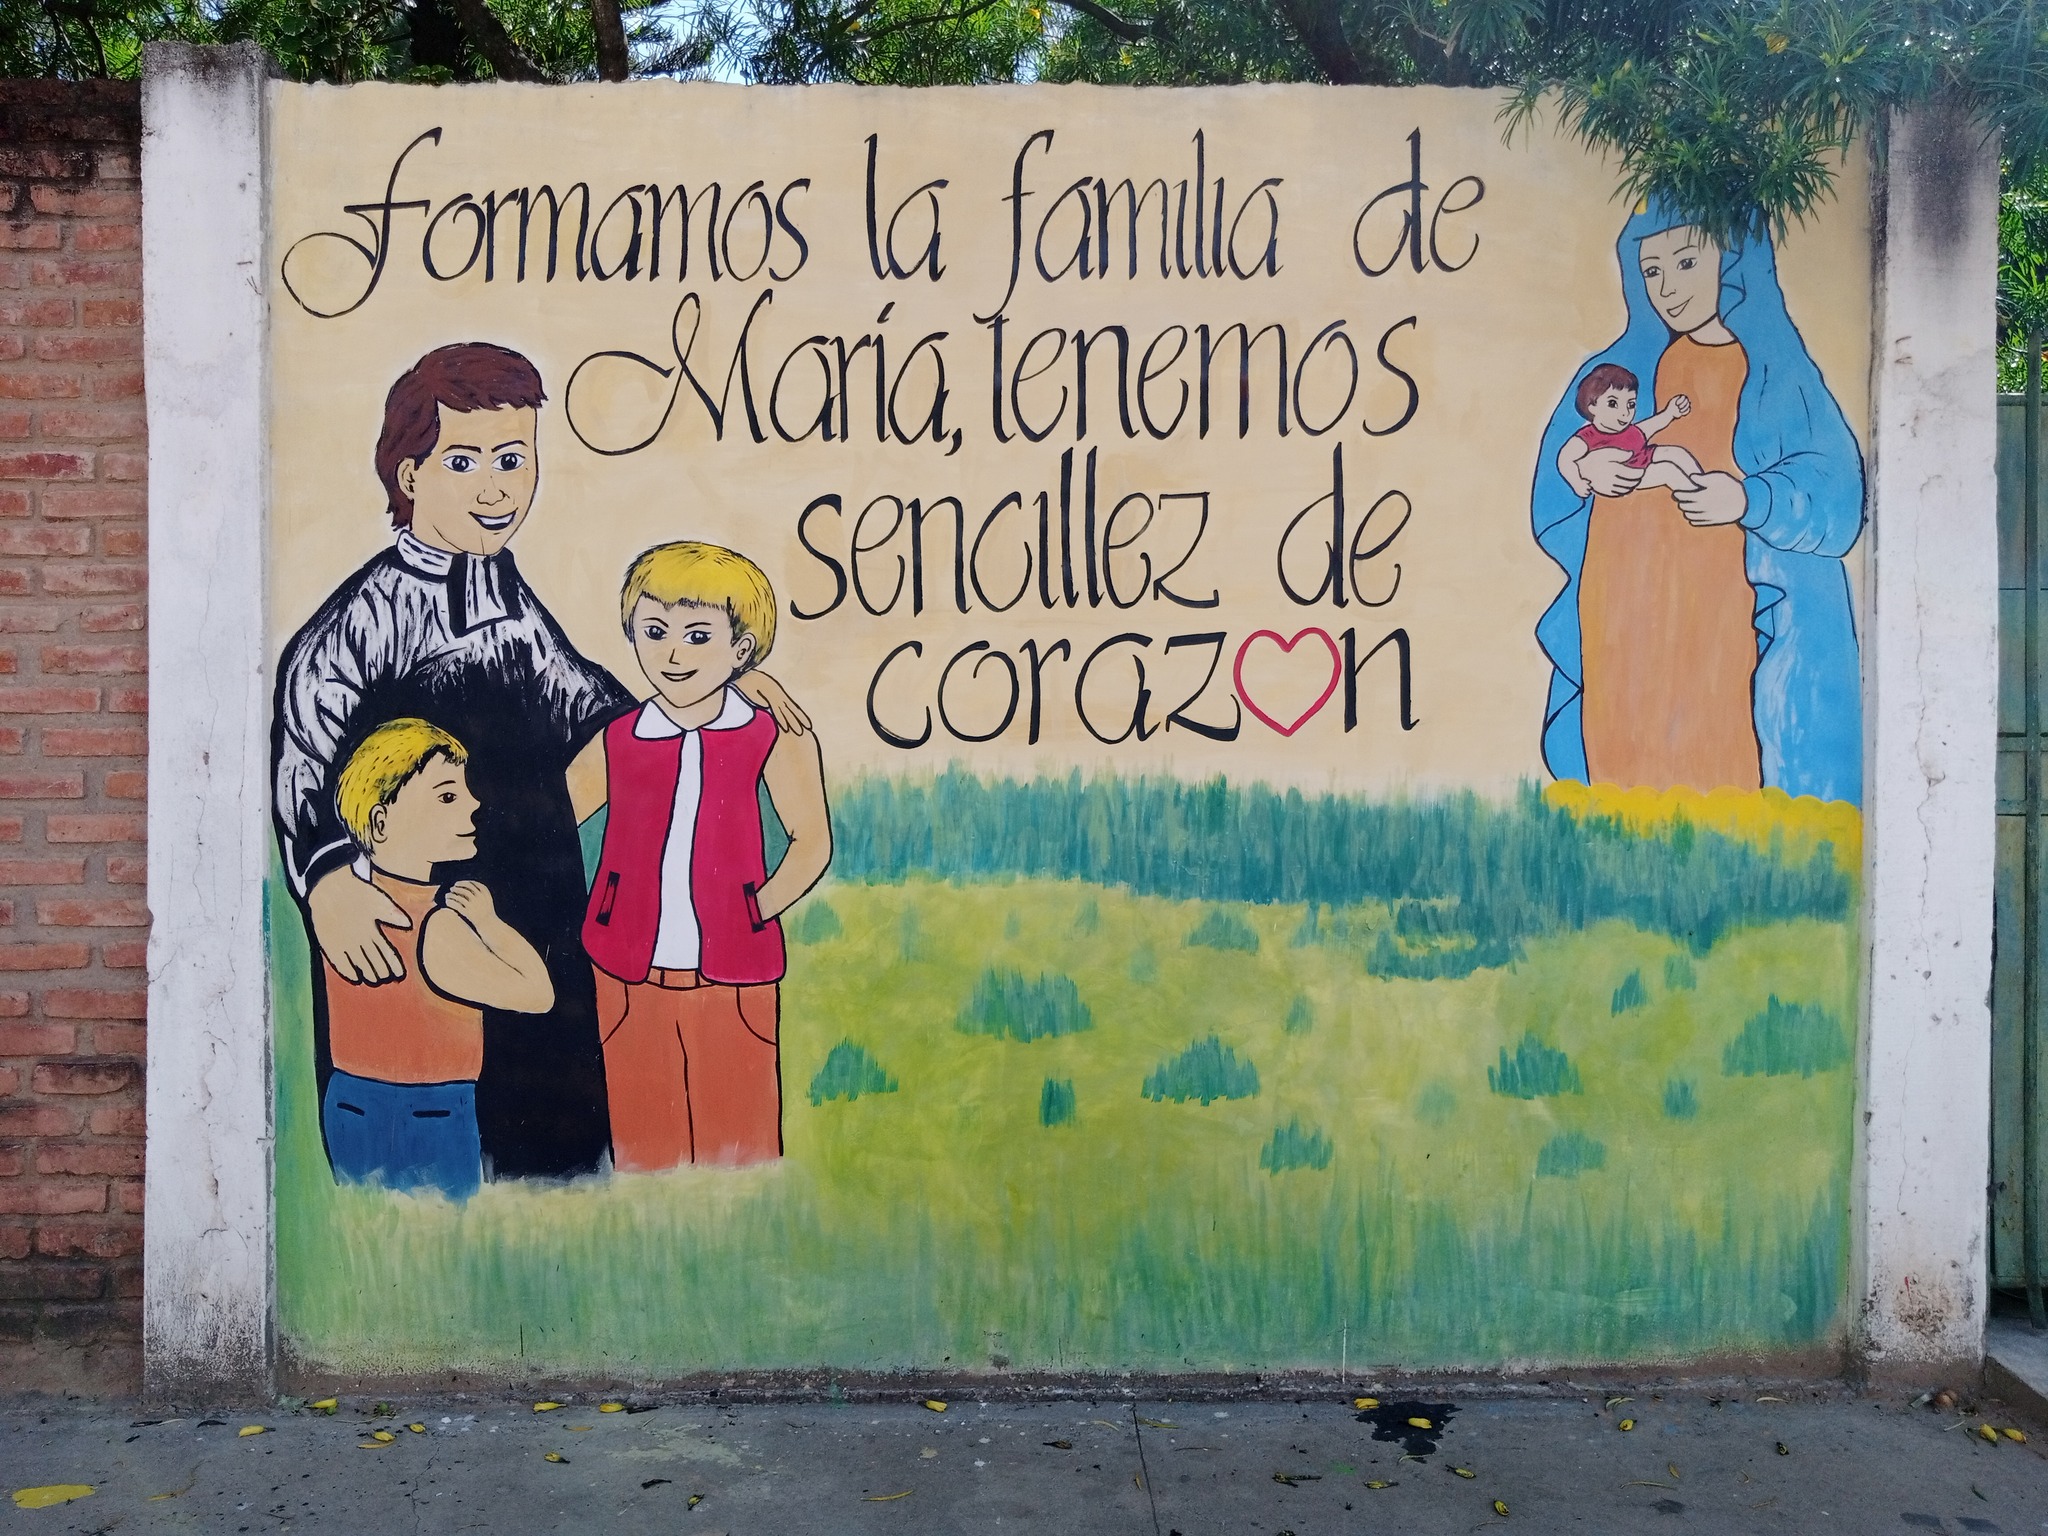 Formamos la familia de
María, tenemos
sencillez de
corazon